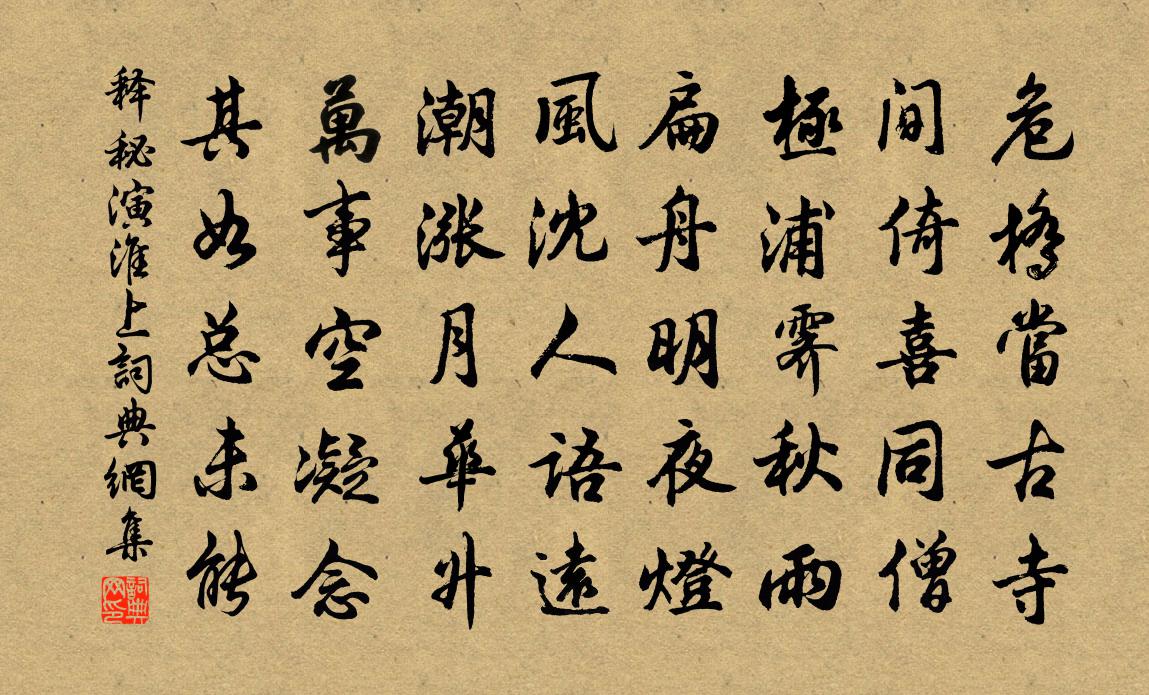 危橋當古寺
閒倚喜同僧
極浦霽秋雨
扁舟明夜燈
風沈人語遠
潮漲月華升
萬事空凝念
其如总未能
释秘演淮上詞典網集
詞典网印